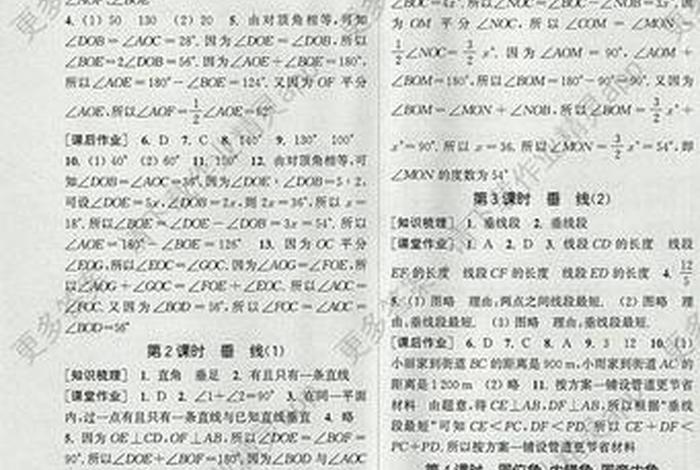 4. (1) 50 130 (2) 20 5. 由对顶角相等,可知
∠DOB=∠AOC=28°. 因为∠DOE=∠DOB,所以
∠BOE=2∠DOB=56°. 因为∠AOE+∠BOE=180°,
所以∠AOE=180°-∠BOE=124°. 又因为 OF 平分
∠AOE,所以∠AOF=1/2∠AOE=62°
[课后作业] 6. D 7. C 8. 140° 9. 130° 100°
10. (1) 40° (2) 60° 11. 12. 由对顶角相等,可
知∠DOB=∠AOC=36°. 因为∠DOE:∠DOB=5:2,
可设∠DOE=5x,∠DOB=2x,则 2x=36°,所以 x=
18°. 所以∠BOE=∠DOE-∠DOB=3x=54°. 所以
∠AOE=180°-∠BOE=126° 13. 因为 OC 平分
∠EOG,所以∠EOC=∠GOC. 因为∠AOG=∠FOE,所
以∠AOG+∠GOC=∠FOE+∠EOC. 所以∠AOC=
∠FOC. 又因为∠BOD=56°,所以∠FOC=∠AOC=
∠BOD=56°
第2课时 垂 线(1)
[知识梳理] 1. 直角 垂足 2. 有且只有一条直线
[课堂作业] 1. D 2. ∠1+∠2=90° 3. 在同一平面
内,过一点有且只有一条直线与已知直线垂直 4. 略
5. 因为 OE⊥CD,OF⊥AB,所以∠DOE=∠BOF=
90°. 所以∠DOE+∠BOF=180°. 因为∠BOD 与∠AOC
∠BOC=4x°. 所以∠NOC=∠BOC-∠NOB=3x°. 因
为 OM 平分∠NOC,所以∠COM=∠MON=
1/2∠NOC=3/2 x°. 因为∠AOM=90°,∠AOM+
∠BOM=180°,所以∠BOM=180°-90°=90°. 又因为
∠BOM=∠MON+∠NOB,所以∠BOM=3/2 x°+
x°=90°. 所以 x=36. 所以∠MON=3/2 x°=54°,即
∠MON 的度数为 54°
第3课时 垂 线(2)
[知识梳理] 1. 垂线段 2. 垂线段
[课堂作业] 1. A 2. D 3. 线段 CD 的长度 线段
EF 的长度 线段 CF 的长度 线段 ED 的长度 4. 12/5
5. (1) 图略 理由:两点之间线段最短. (2) 图略 理
由:垂线段最短. (3) 图略 理由:垂线段最短.
[课后作业] 6. D 7. C 8. A 9. 3 12 10. (1)
小丽家到街道 BC 的距离是 900 m,小雨家到街道 AC 的
距离是 1 200 m (2) 略 11. 按方案一铺设管道更节省
材料 由题意,得 CE⊥AB,DF⊥AB,所以根据“垂线
段最短”可知 CE<PC,DF<PD. 所以 CE+DF<
PC+PD. 所以按方案一铺设管道更节省材料